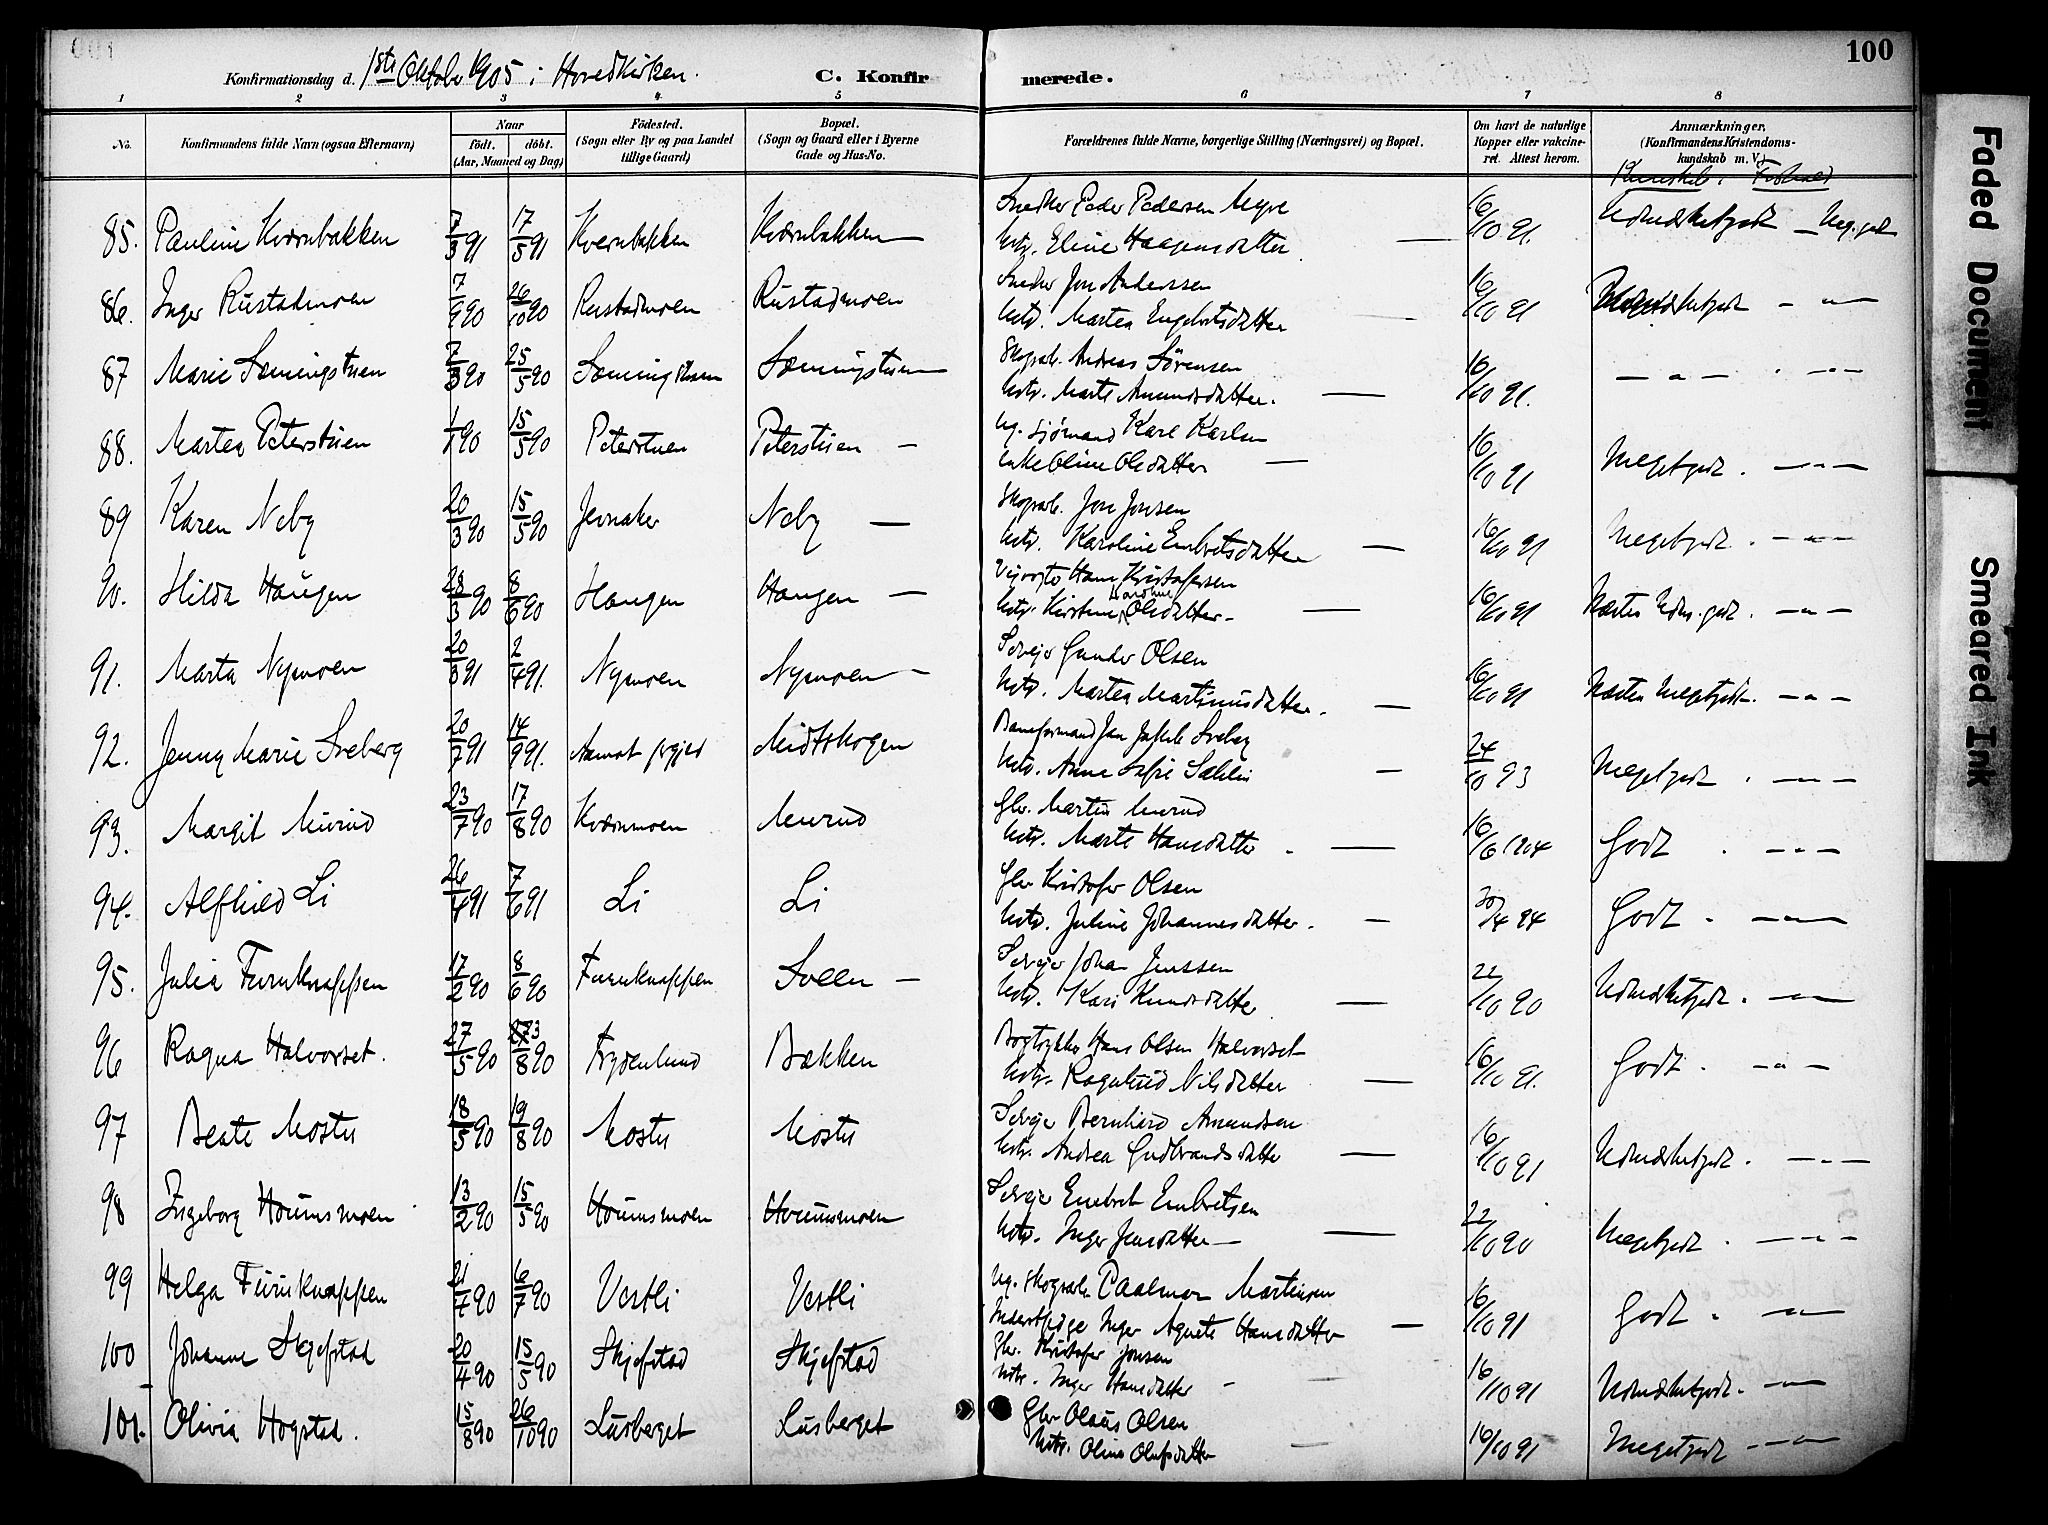 100
Konfirmationsdag d. 1ste Oktober 1905 i Hovedkirken. C. Konfirmerede.
1 2 3 4 5 6 7 8
No. Konfirmandens fulde Navn (ogsaa Efternavn) Naar født. døbt. (Aar, Maaned og Dag) Fødested. (Sogn eller By og paa Landet tillige Gaard) Bopæl. (Sogn og Gaard eller i Byerne Gade og Hus-No. Forældrenes fulde Navne, borgerlige Stilling (Næringsvei) og Bopæl. Om havt de naturlige Kopper eller vakcineret. Attest herom. Anmærkninger. (Konfirmandens Kristendomskundskab m. V.)
85. Pauline Kværnbakken 7/3 91 17/5 91 Kvernbakken Kværnbakken Snedker Peder Pedersen Myre
Hstr. Eline Haagensdatter 16/10 91. Udmærketgodt - Meg. godt
86. Inger Rustadmoen 7/9 90 26/10 90 Rustadmoen Rustadmoen Snedker Jon Anderssen
Hstr. Martea Engebretsdatter 16/10 91 Udmærketgodt - " -
87 Marie Sæmingstuen 7/3 90 25/5 90 Sæmingstuen Sæmingstuen Skogsarb. Andreas Sørensen
Hstr. Marte Amundsdatter. 16/10 91. - " - - " -
88. Martea Peterstuen 1/1 90 15/5 90 Peterstuen Peterstuen Ug. Sjømand Karl Karlsen
Enke Oline Olsdatter 16/10 91 Megetgodt. - " -
89 Karen Neby 20/3 90 15/5 90 Jevnaker Neby Skogsarb. Jon Jonsen
Hstr. Karoline Embretsdatter 16/10 91 Megetgodt. - " -
90. Hilda Haugen 28/3 90 8/6 90 Haugen Haugen Veivogter Hans Kristofersen
Hstr. Kirstine Karoline Olsdatter - 16/10 91 Næsten Udm. godt. - " -
91. Marta Nymoen 20/3 91 2/4 91. Nymoen Nymoen Selveier Gunder Olsen
Hstr. Martea Martinusdatter. 16/10 91 Næsten Megetgodt. - " -
92. Jenny Marie Sveberg 20/7 91 14/9 91. Aamot prgjld Midtskogen Baneformand Jan Jakob Sveberg
Hstr. Anne Sofie Sahlin 24/10 93 Megetgodt. - " -
93. Margit Murud 23/7 90 17/8 90 Kværnmoen Murud Gbr. Martin Murud
Hstr. Marte Hansdatter. 16/6 1904 Godt. - " -
94. Alfhild Li 26/4 91 7/6 91 Li Li Gbr. Kristofer Olsen
Hstr. Juline Johannesdatter. 30/4 94 Godt. - " -
95. Julia Furuknappen 17/2 90 8/6 90 Furuknappen Sveen Selveier Johan Jenssen
Hstr. Kari Knudsdatter 22/10 90 Udmærketgodt. - " -
96 Ragna Halvorset. 27/5 90 3/8 90 Frydenlund Bækken Bogtrykker Hans Olsen Halvorset
Hstr. Ragnhild Nilsdatter 16/10 91. Godt. - " -
97 Beate Moster 18/5 90 19/8 90 Moster Moster Selveier Bernhard Amundsen
Hstr. Andrea Gudbrandsdatter 16/10 91 Udmærketgodt. - " -
98 Ingeborg Hoiumsmoen 13/2 90 15/5 90 Hoiumsmoen Hoiumsmoen Selveier Embret Embretsen
Hstr. Inger Jensdatter 22/10 90 Megetgodt. - " -
99 Helga Furuknappen 21/4 90 6/7 90 Vestli Vestli Ug. Skogsarb. Paalmar Martinsen
Inderstpige Inger Agnete Hansdatter 16/10 91 Godt. - " -
100 Johanne Skjefstad 20/4 90 15/5 90 Skjefstad Skjefstad Gbr. Kristofer Jonsen
Hstr. Inger Hansdatter 16/10 91 Udmærketgodt. - " -
101. Olivia Hogstad. 15/8 90 26/10 90 Lusberget Lusberget Gbr. Olaus Olsen
Hstr. Oline Olufsdatter 16/10 91 Megetgodt - " -
Faded Document
Smeared Ink